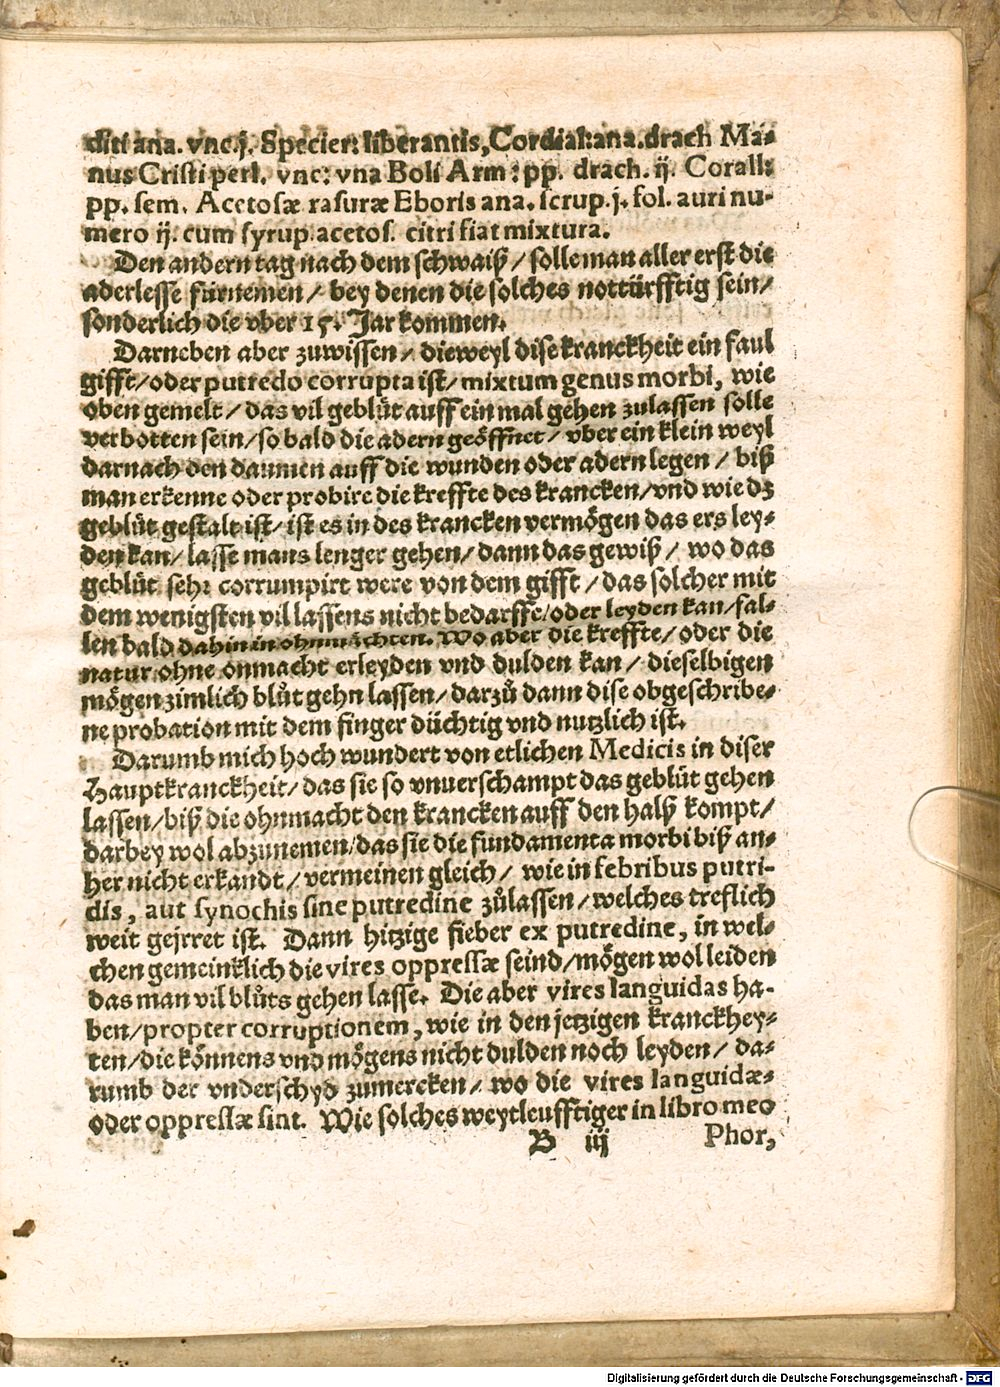 diti ana. vnc. j. Specier: liberantis, Cordial: ana. drach Ma-
nus Cristi perl. vnc: vna Boli Arm: pp. drach. ij. Corall:
pp. sem. Acetosæ rasuræ Eboris ana. scrup. j. fol. auri nu-
mero ij. cum syrup. acetos. citri fiat mixtura.
Den andern tag nach dem schwaiß / solle man aller erst die
aderlesse fürnemen / bey denen die solches nottürfftig sein /
sonderlich die vber 15. Jar kommen.
Darneben aber zuwissen / dieweyl dise kranckheit ein faul
gifft / oder putredo corrupta ist / mixtum genus morbi, wie
oben gemelt / das vil geblüt auff ein mal gehen zulassen solle
verbotten sein / so bald die adern geöffnet / vber ein klein weyl
darnach den daumen auff die wunden oder adern legen / biß
man erkenne oder probire die kreffte des krancken / vnd wie dz
geblüt gestalt ist / ist es in des krancken vermögen das ers ley-
den kan / lasse mans lenger gehen / dann das gewiß / wo das
geblüt sehr corrumpirt were von dem gifft / das solcher mit
dem wenigsten vil lassens nicht bedarffe / oder leyden kan / fal-
len bald dahin in ohnmächten. Wo aber die kreffte / oder die
natur ohne onmacht erleyden vnd dulden kan / dieselbigen
mögen zimlich blůt gehn lassen / darzů dann dise obgeschribe-
ne probation mit dem finger düchtig vnd nutzlich ist.
Darumb mich hoch wundert von etlichen Medicis in diser
Hauptkranckheit / das sie so vnuerschampt das geblüt gehen
lassen / biß die ohnmacht den krancken auff den halß kompt /
darbey wol abzunemen / das sie die fundamenta morbi biß an-
her nicht erkandt / vermeinen gleich / wie in febribus putri-
dis, aut synochis sine putredine zůlassen / welches treflich
weit gejrret ist. Dann hitzige fieber ex putredine, in wel-
chen gemeinklich die vires oppressæ seind / mögen wol leiden
das man vil blůts gehen lasse. Die aber vires languidas ha-
ben / propter corruptionem, wie in den jetzigen kranckhey-
ten / die könnens vnd mögens nicht dulden noch leyden / da-
rumb der vnderschyd zumercken / wo die vires languidæ-
oder oppressæ sint. Wie solches weytleufftiger in libro meo
B iij Phor,
Digitalisierung gefördert durch die Deutsche Forschungsgemeinschaft - DFG